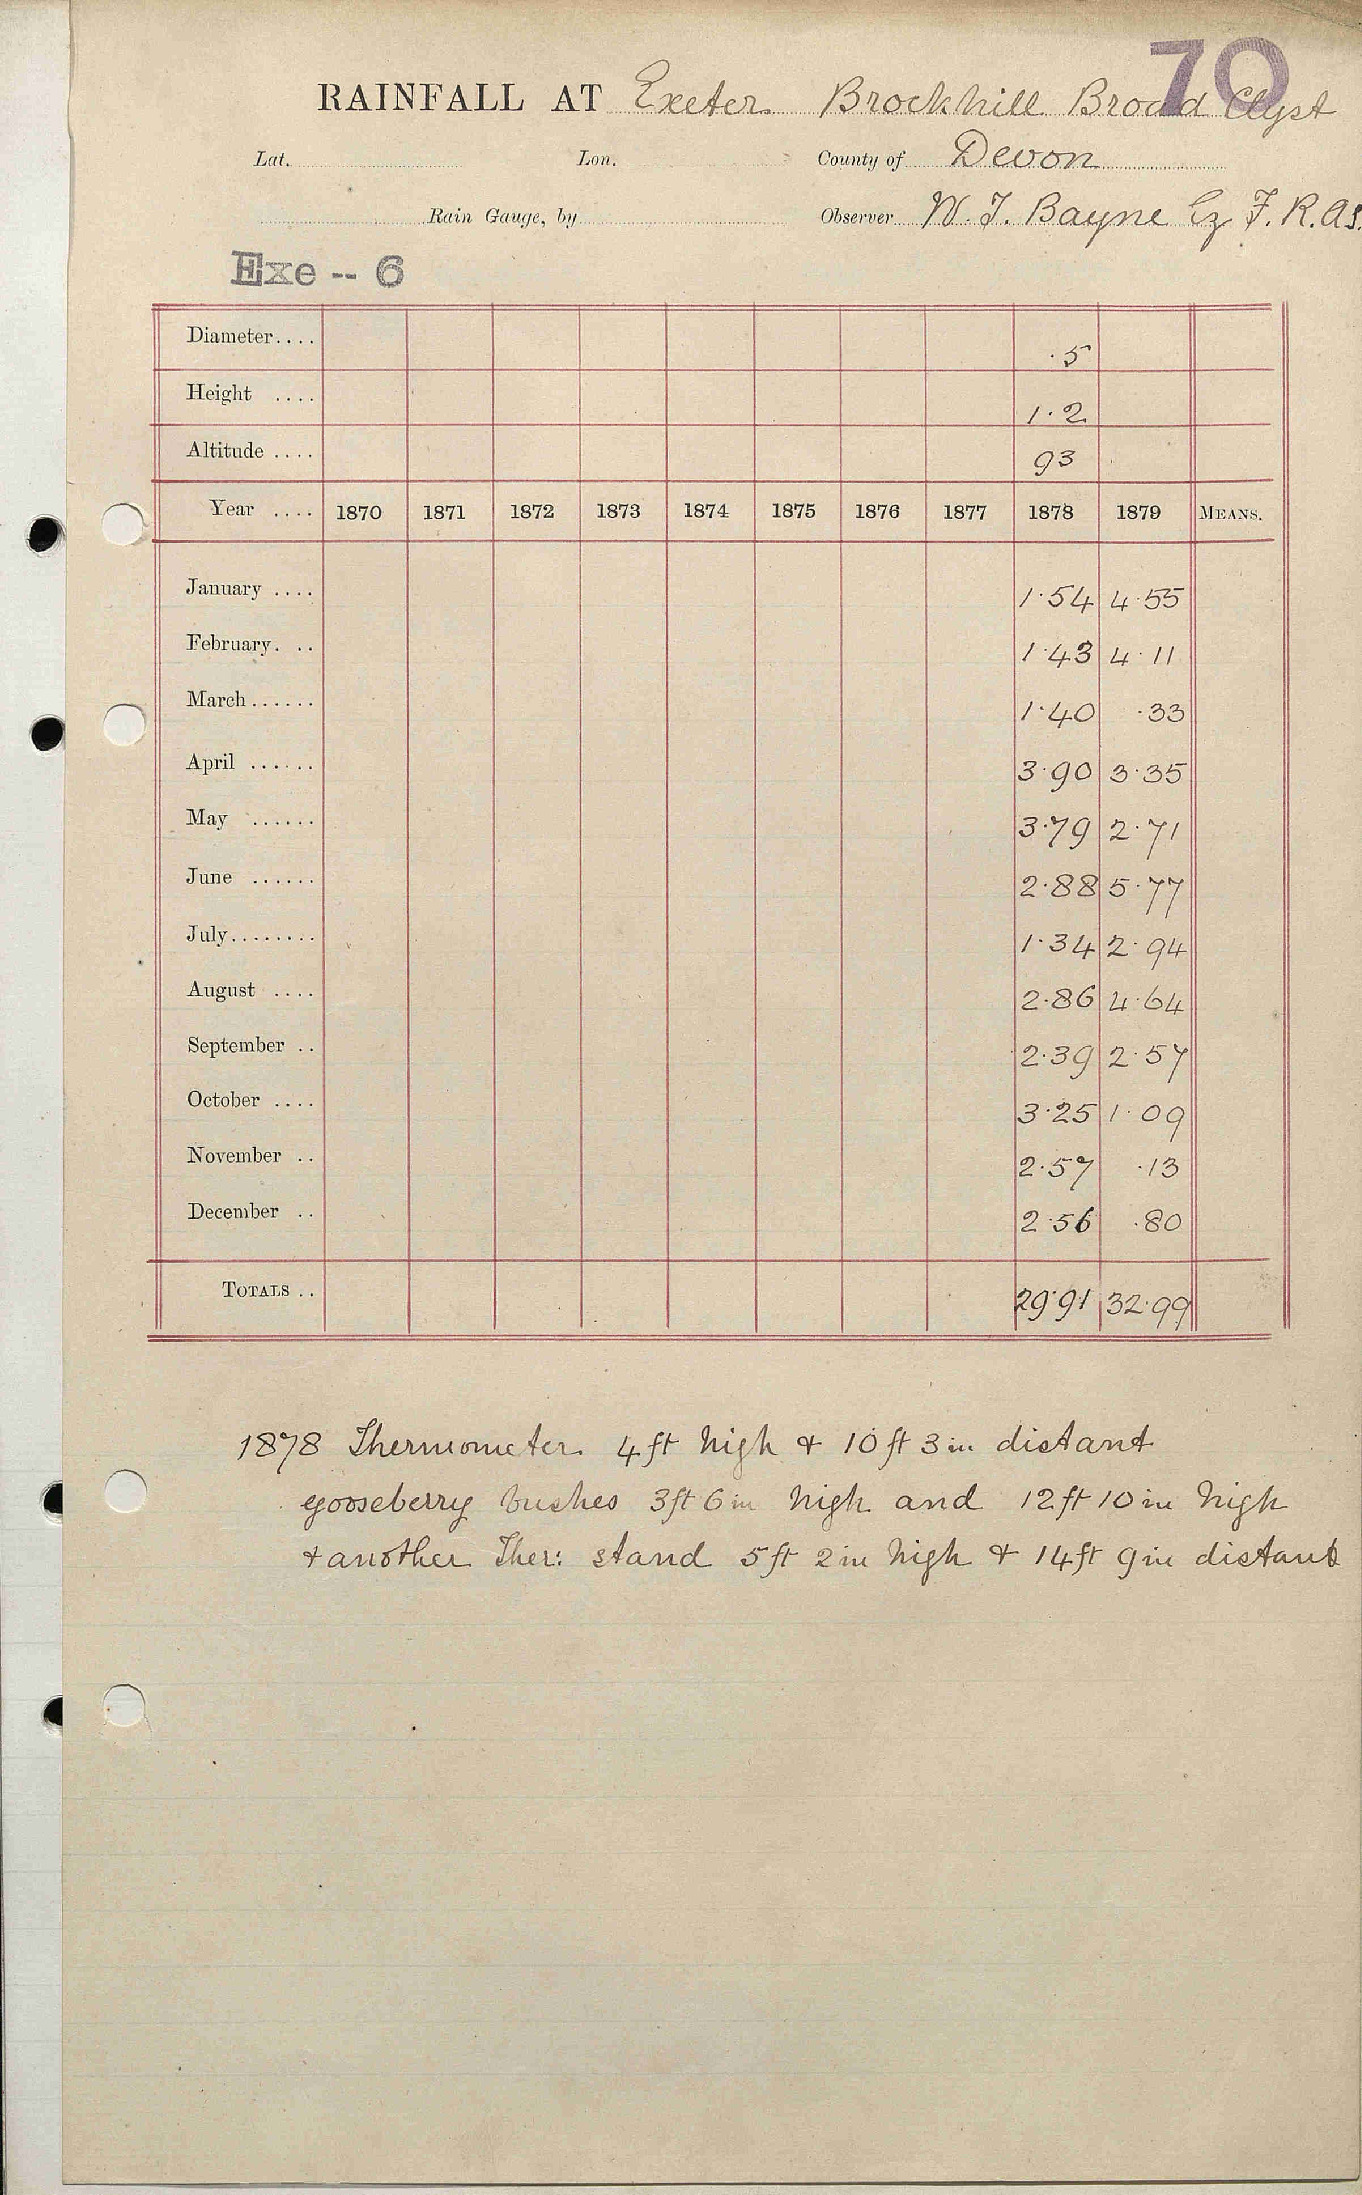 70
RAINFALL AT Exeter Brockhill Broad Clyst
Lat. Lon. County of Devon
Rain Gauge, by Observer W. T. Bayne Eq F.R.A.S.
Exe -- 6
Diameter.... .5
Height .... 1.2
Altitude .... 93
Year .... 1870 1871 1872 1873 1874 1875 1876 1877 1878 1879 MEANS.
January .... 1.54 4.55
February. .. 1.43 4.11
March...... 1.40 .33
April ...... 3.90 3.35
May ...... 3.79 2.71
June ...... 2.88 5.77
July........ 1.34 2.94
August .... 2.86 4.64
September .. 2.39 2.57
October .... 3.25 1.09
November .. 2.57 .13
December .. 2.56 .80
TOTALS .. 29.91 32.99
1878 Thermometer 4ft high & 10ft 3in distant
gooseberry bushes 3ft 6in high and 12ft 10in high
& another Ther: stand 5ft 2in high & 14ft 9in distant